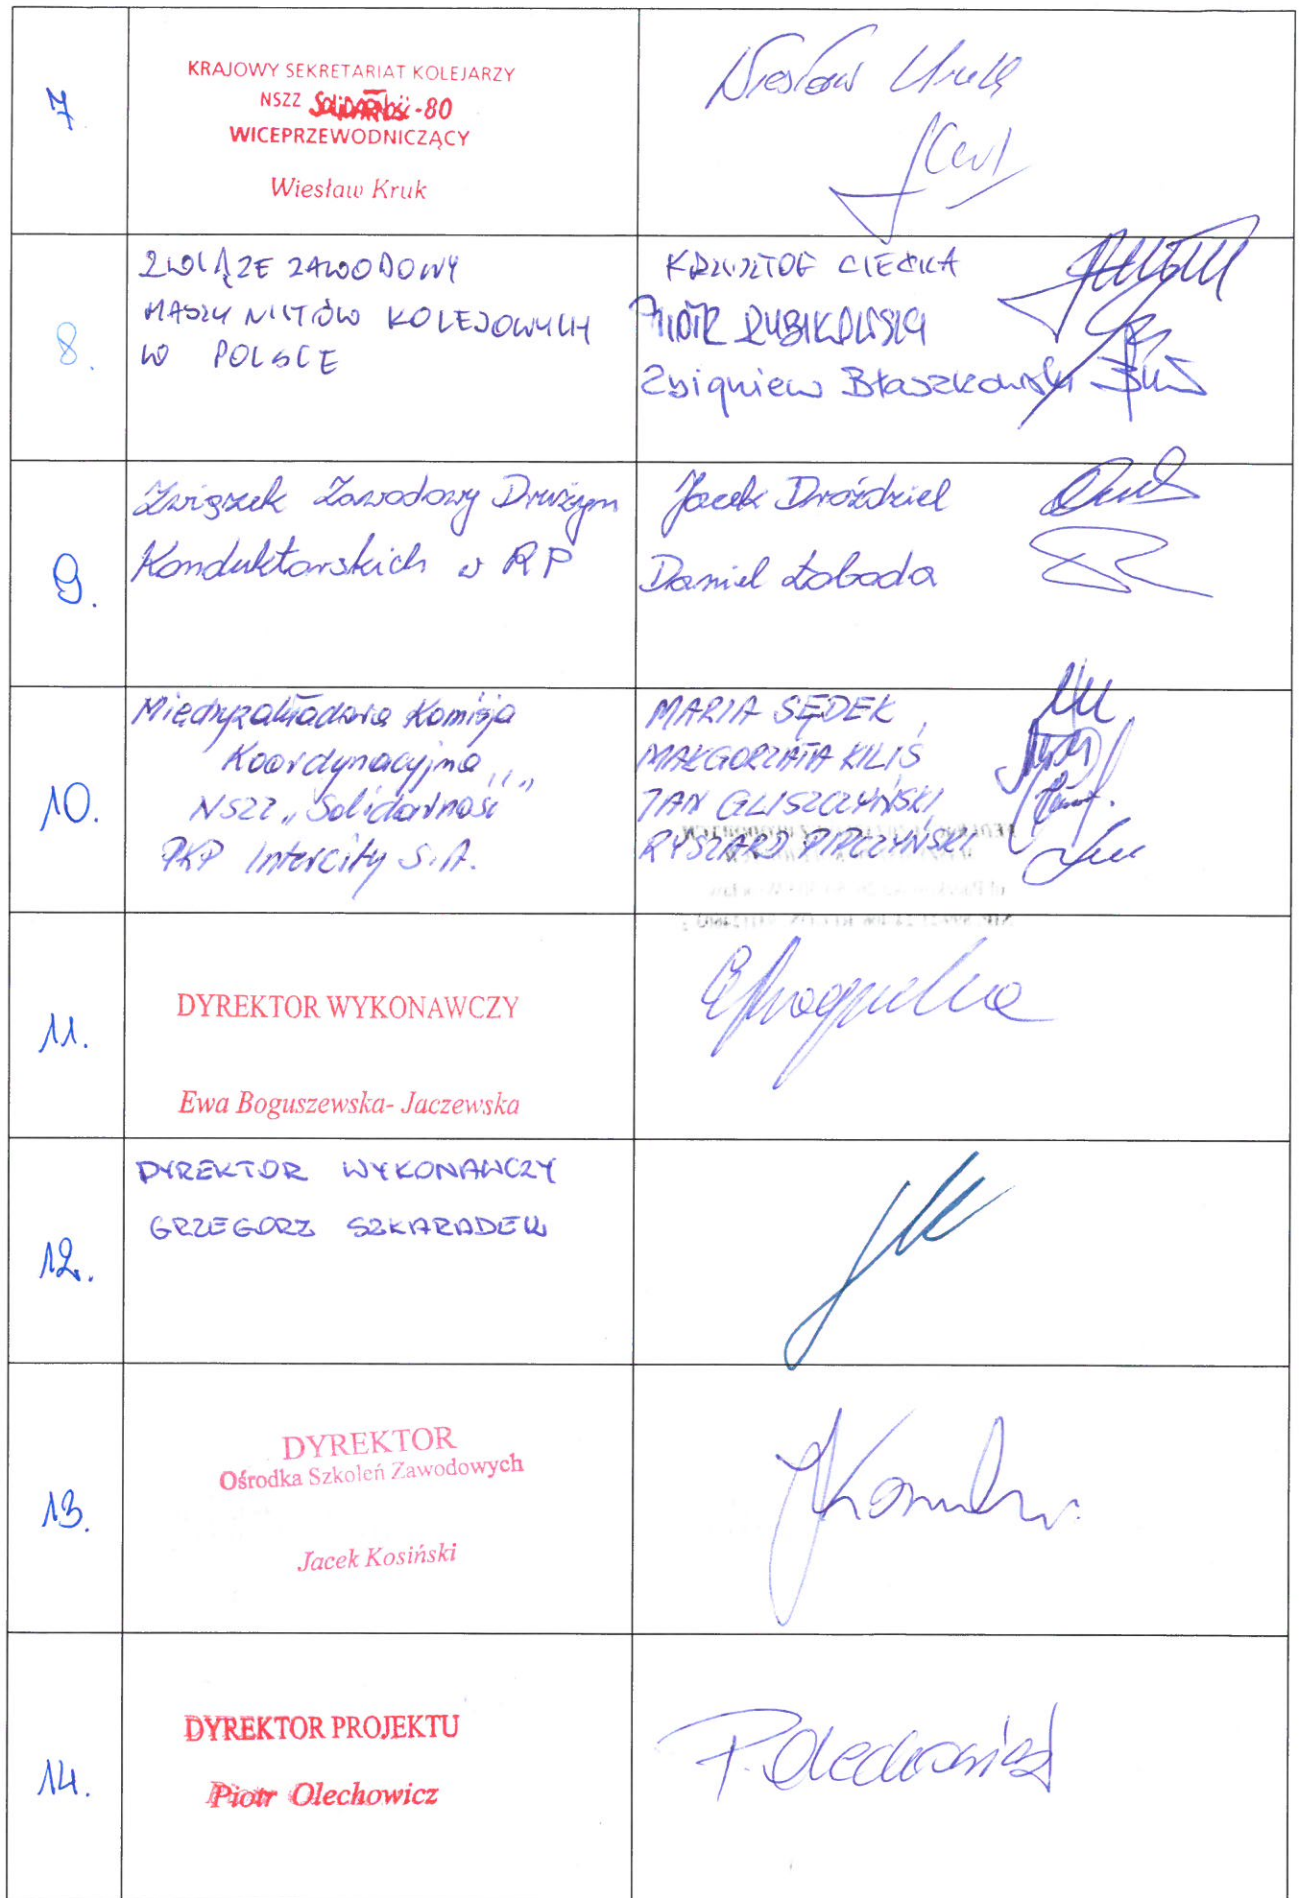 7
KRAJOWY SEKRETARIAT KOLEJARZY
NSZZ Solidarność -80
WICEPRZEWODNICZĄCY
Wiesław Kruk
Wiesław Kruk
8.
ZWIĄZE ZAWODOWY
MASZYNISTÓW KOLEJOWYCH
W POLSCE
KRZYSZTOF CIEĆKA
PIOTR RYBIKOWSKI
Zbigniew Błaszkowski
9.
Związek Zawodowy Drużyn
Konduktorskich w RP
Jacek Droździel
Daniel Łoboda
10.
Międzyzakładowa Komisja
Koordynacyjna
NSZZ „Solidarność”
PKP Intercity S.A.
MARIA SĘDEK
MAŁGORZATA KILIŚ
JAN GLISZCZYŃSKI
RYSZARD PIPCZYŃSKI
11.
DYREKTOR WYKONAWCZY
Ewa Boguszewska- Jaczewska
12.
DYREKTOR WYKONAWCZY
GRZEGORZ SZKARADEK
13.
DYREKTOR
Ośrodka Szkoleń Zawodowych
Jacek Kosiński
14.
DYREKTOR PROJEKTU
Piotr Olechowicz
P. Olechowicz